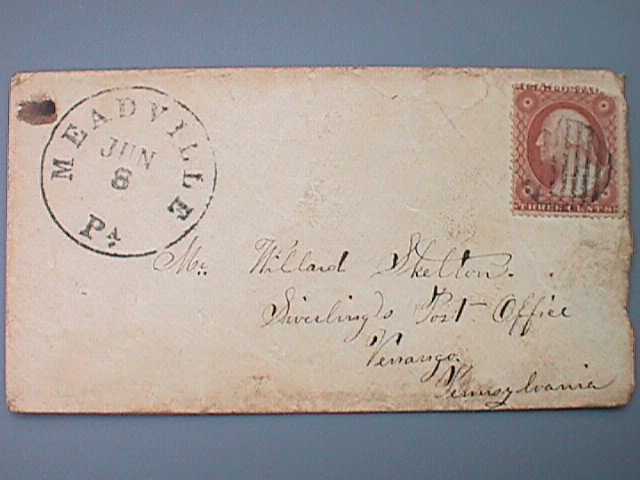 MEADVILLE
JUN
8
PA.
THREE CENTS
Mr. Willard Skelton.
Post Office
Venango.
Pennsylvania